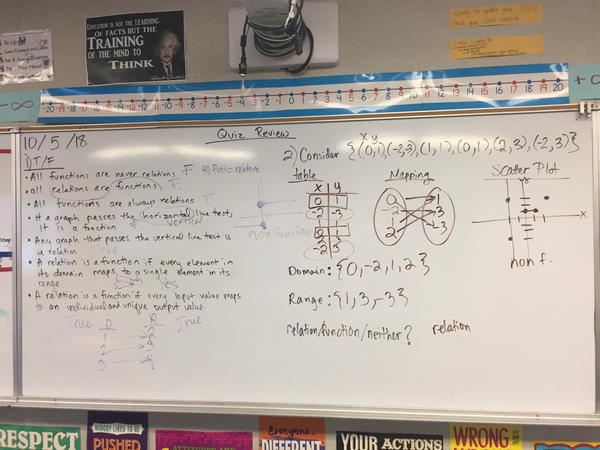 EDUCATION IS NOT THE LEARNING
OF FACTS BUT THE
TRAINING
OF THE MIND TO
THINK
-∞ -20 -19 -18 -17 -16 -15 -14 -13 -12 -11 -10 -9 -8 -7 -6 -5 -4 -3 -2 -1 0 1 2 3 4 5 6 7 8 9 10 11 12 13 14 15 16 17 18 19 20 +∞
10/5/18
Quiz Review
1) T/F
• All functions are never relations F All fxns = relations
• all relations are functions F
• All functions are always relations T
• If a graph passes the (horizontal) line test,
it is a function F vertical
• Any graph that passes the vertical line test is
a relation
• A relation is a function if every element in
its domain maps to a single element in its
range Yes
• A relation is a function if every input value maps
to an individual and unique output value.
True D R True
1
2
3
non function
2) Consider {(0,1), (-2,-3), (1,1), (0,1), (2,3), (-2,3)}
x y
table Mapping Scatter Plot
x y
0 1
-2 -3
1 1
0 1
2 3
-2 3
0 1
-2 3
1 -3
2
y
x
non f.
Domain: {0,-2,1,2}
Range: {1,3,-3}
relation/function/neither? relation
RESPECT
NOBODY LIKES TO BE
PUSHED
everyone
DIFFERENT
YOUR ACTIONS
WRONG